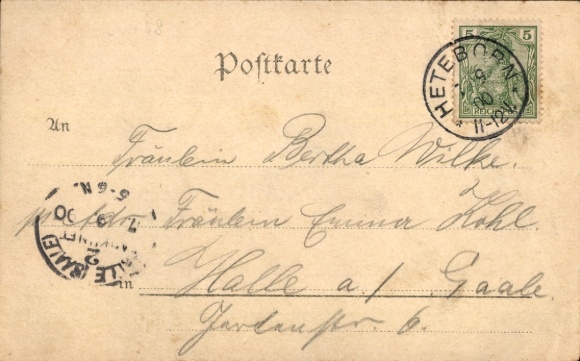 5 5
REICHSPOST
HETEBORN
9
00
11-12V.
Postkarte
An
Fräulein Bertha Wilke.
p. Adr. Fräulein Emma Kohl.
in Halle a./ Saale.
str. 6.
5-6 N.
7 9 00
2
HALLE (SAALE)